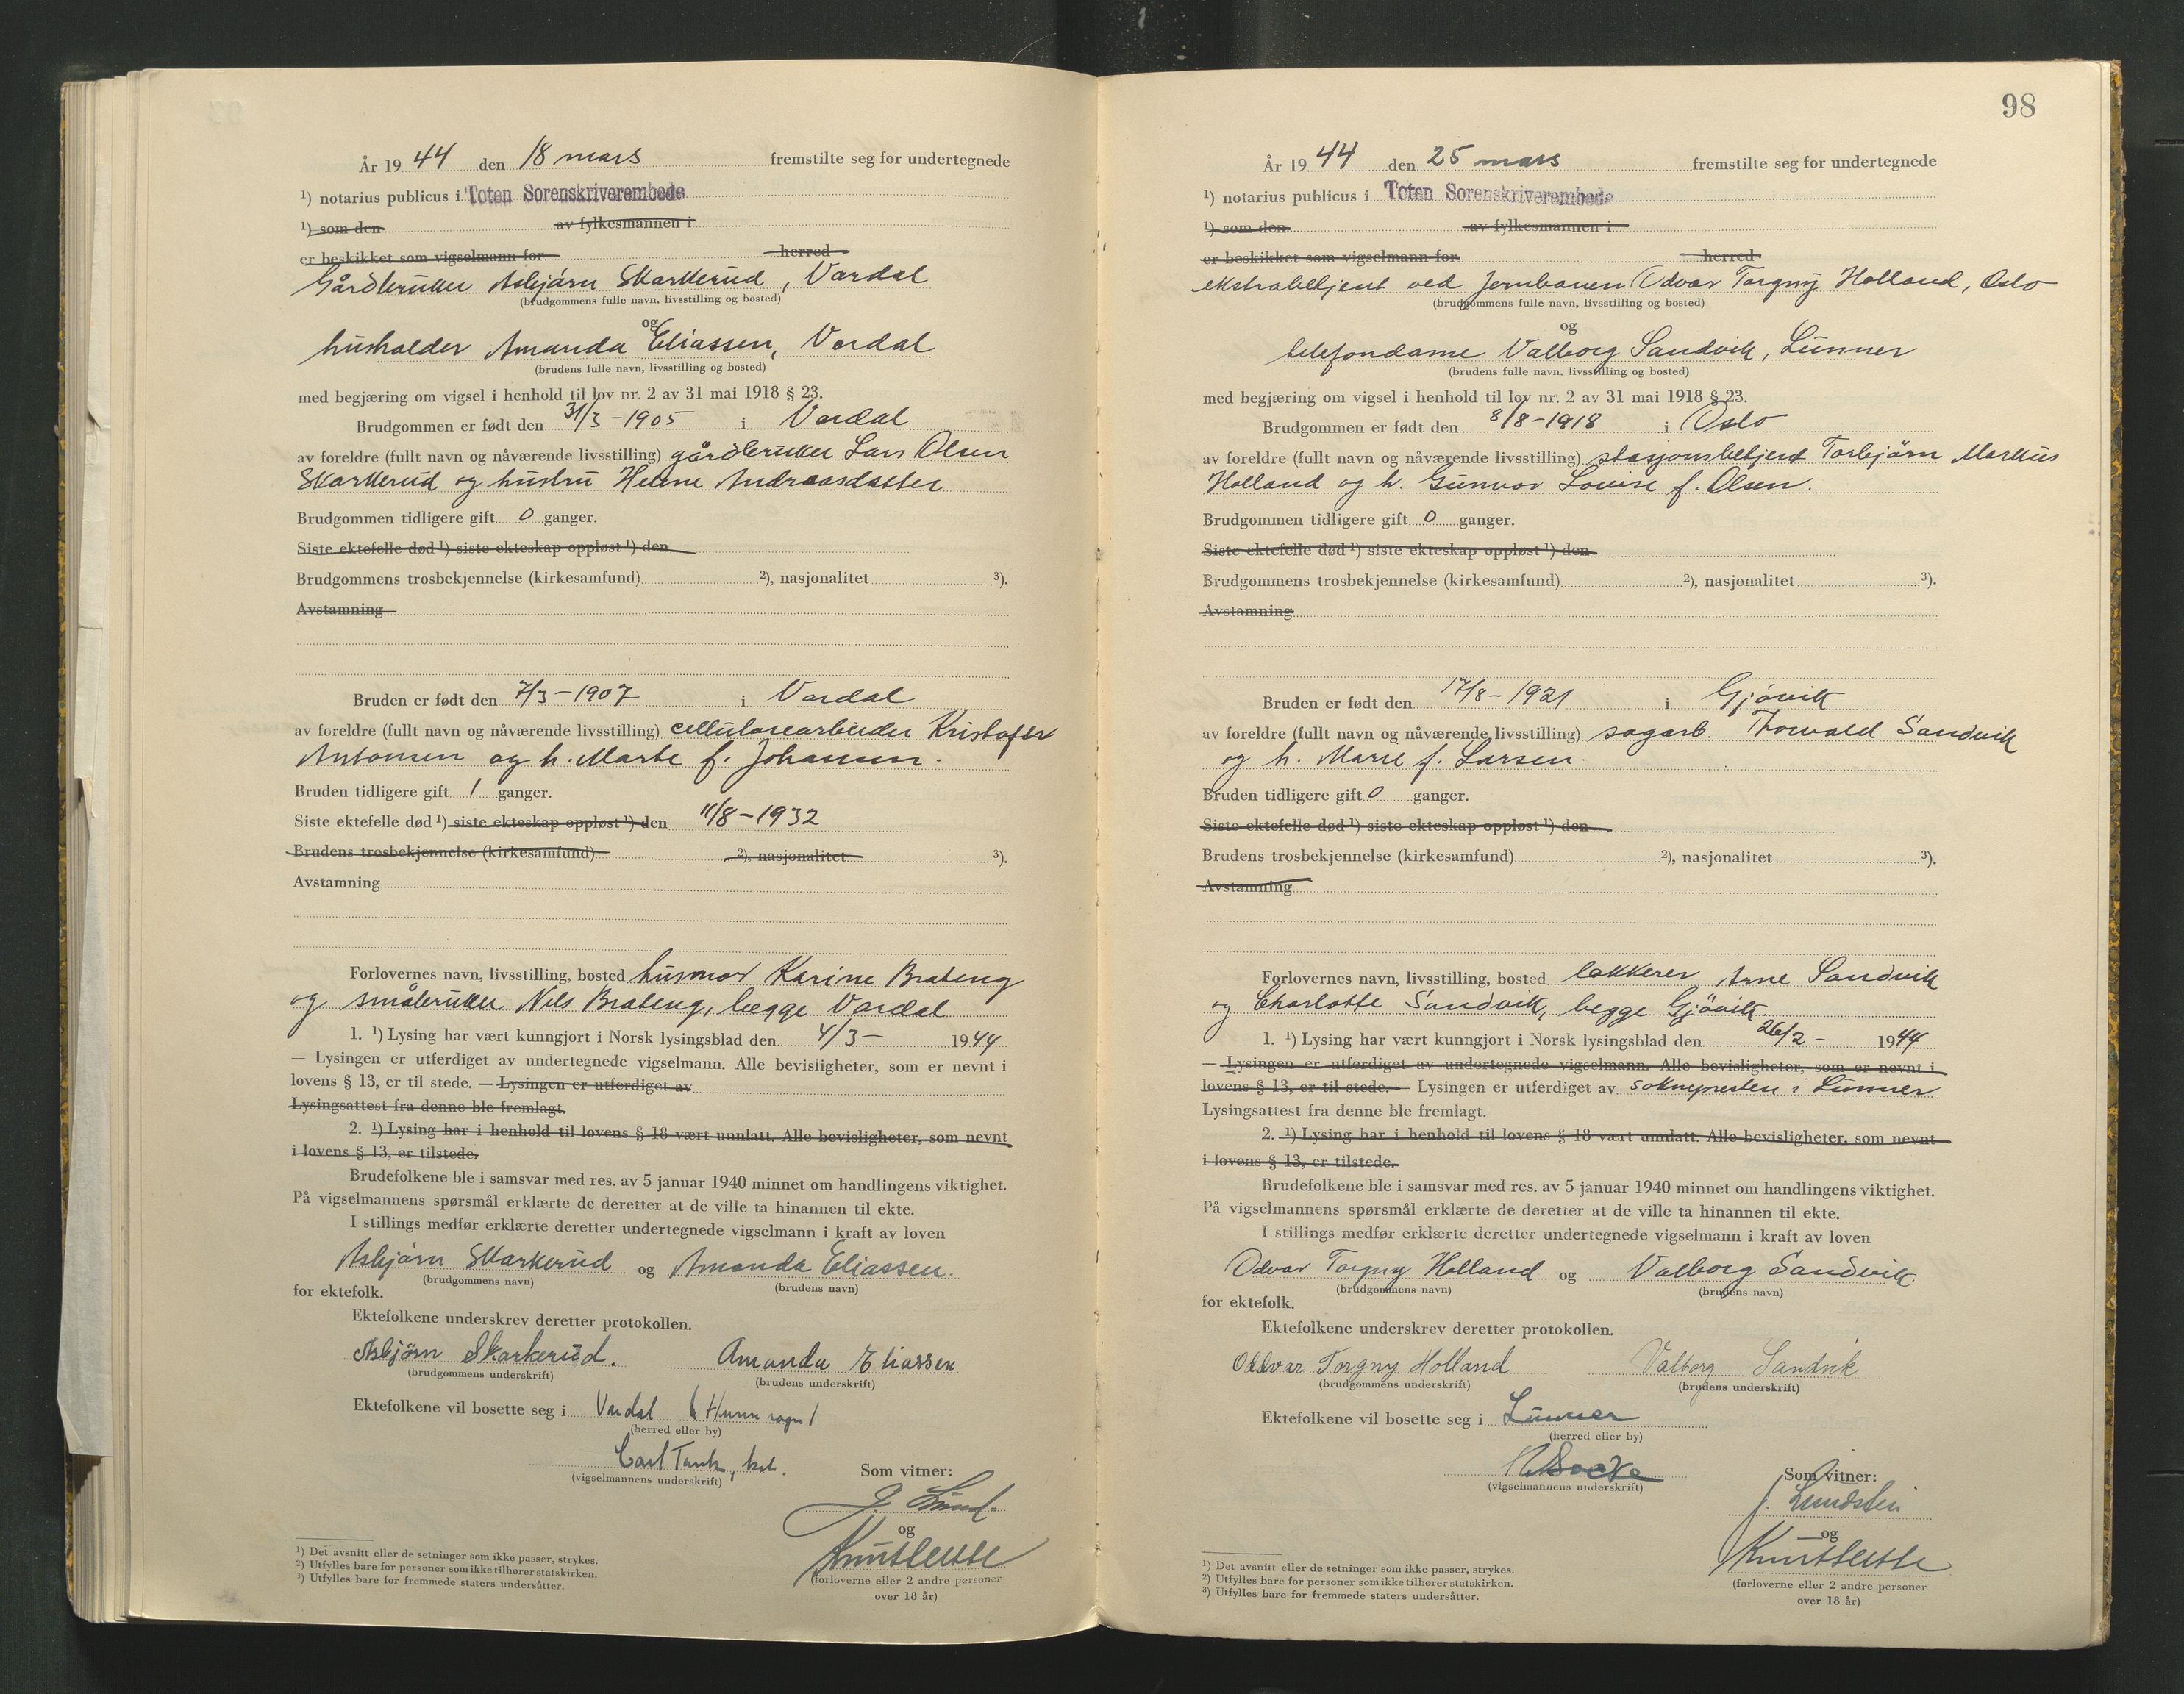 År 1944 den 18 mars fremstilte seg for undertegnede
¹) notarius publicus i Toten Sorenskriverembede
¹) som den av fylkesmannen i
er beskikket som vigselmann for herred
Gårdbruker Asbjörn Skarkerud, Vardal
(brudgommens fulle navn, livsstilling og bosted)
og
husholder Amanda Eliassen, Vardal
(brudens fulle navn, livsstilling og bosted)
med begjæring om vigsel i henhold til lov nr. 2 av 31 mai 1918 § 23.
Brudgommen er født den 31/3-1905 i Vardal
av foreldre (fullt navn og nåværende livsstilling) gårdbruker Lars Olsen
Skarkerud og hustru Helene Andreasdatter
Brudgommen tidligere gift 0 ganger.
Siste ektefelle død ¹) siste ekteskap oppløst ¹) den
Brudgommens trosbekjennelse (kirkesamfund) ²), nasjonalitet ³).
Avstamning
Bruden er født den 7/3-1907 i Vardal
av foreldre (fullt navn og nåværende livsstilling) cellulosearbeider Kristofer
Antonsen og h. Marte f. Johansen.
Bruden tidligere gift 1 ganger.
Siste ektefelle død ¹) siste ekteskap oppløst ¹) den 11/8-1932
Brudens trosbekjennelse (kirkesamfund) ²), nasjonalitet ³).
Avstamning
Forlovernes navn, livsstilling, bosted husmor Karine Brateng
og småbruker Nils Brateng, begge Vardal
1. ¹) Lysing har vært kunngjort i Norsk lysingsblad den 4/3- 1944
— Lysingen er utferdiget av undertegnede vigselmann. Alle bevisligheter, som er nevnt i
lovens § 13, er til stede. — Lysingen er utferdiget av
Lysingsattest fra denne ble fremlagt.
2. ¹) Lysing har i henhold til lovens § 18 vært unnlatt. Alle bevisligheter, som nevnt
i lovens § 13, er tilstede.
Brudefolkene ble i samsvar med res. av 5 januar 1940 minnet om handlingens viktighet.
På vigselmannens spørsmål erklærte de deretter at de ville ta hinannen til ekte.
I stillings medfør erklærte deretter undertegnede vigselmann i kraft av loven
Asbjörn Skarkerud og Amanda Eliassen.
(brudgommens navn) (brudens navn)
for ektefolk.
Ektefolkene underskrev deretter protokollen.
Asbjörn Skarkerud. Amanda Eliassen
(brudgommens underskrift) (brudens underskrift)
Ektefolkene vil bosette seg i Vardal (Hunn sogn)
(herred eller by)
Carl Tank, kst.
(vigselmannens underskrift) Som vitner:
J. Lund.
og
(forloverne eller 2 andre personer
over 18 år)
¹) Det avsnitt eller de setninger som ikke passer, strykes.
²) Utfylles bare for personer som ikke tilhører statskirken.
³) Utfylles bare for fremmede staters undersåtter.
98
År 1944 den 25 mars fremstilte seg for undertegnede
¹) notarius publicus i Toten Sorenskriverembede
¹) som den av fylkesmannen i
er beskikket som vigselmann for herred
ekstrabetjent ved Jernbanen Odvar Torgny Holland, Oslo
(brudgommens fulle navn, livsstilling og bosted)
og
telefondame Valborg Sandvik, Lunner
(brudens fulle navn, livsstilling og bosted)
med begjæring om vigsel i henhold til lov nr. 2 av 31 mai 1918 § 23.
Brudgommen er født den 8/8-1918 i Oslo
av foreldre (fullt navn og nåværende livsstilling) stasjonsbetjent Torbjörn Markus
Holland og h. Gunvor Louise f. Olsen.
Brudgommen tidligere gift 0 ganger.
Siste ektefelle død ¹) siste ekteskap oppløst ¹) den
Brudgommens trosbekjennelse (kirkesamfund) ²), nasjonalitet ³).
Avstamning
Bruden er født den 17/8-1921 i Gjövik
av foreldre (fullt navn og nåværende livsstilling) sagarb. Thorvald Sandvik
og h. Marie f. Larsen.
Bruden tidligere gift 0 ganger.
Siste ektefelle død ¹) siste ekteskap oppløst ¹) den
Brudens trosbekjennelse (kirkesamfund) ²), nasjonalitet ³).
Avstamning
Forlovernes navn, livsstilling, bosted lakkerer Arne Sandvik
og Charlotte Sandvik, begge Gjövik.
1. ¹) Lysing har vært kunngjort i Norsk lysingsblad den 26/2- 1944
— Lysingen er utferdiget av undertegnede vigselmann. Alle bevisligheter, som er nevnt i
lovens § 13, er til stede. — Lysingen er utferdiget av soknepresten i Lunner
Lysingsattest fra denne ble fremlagt.
2. ¹) Lysing har i henhold til lovens § 18 vært unnlatt. Alle bevisligheter, som nevnt
i lovens § 13, er tilstede.
Brudefolkene ble i samsvar med res. av 5 januar 1940 minnet om handlingens viktighet.
På vigselmannens spørsmål erklærte de deretter at de ville ta hinannen til ekte.
I stillings medfør erklærte deretter undertegnede vigselmann i kraft av loven
Odvar Torgny Holland og Valborg Sandvik
(brudgommens navn) (brudens navn)
for ektefolk.
Ektefolkene underskrev deretter protokollen.
Oddvar Torgny Holland Valborg Sandvik
(brudgommens underskrift) (brudens underskrift)
Ektefolkene vil bosette seg i Lunner
(herred eller by)
(vigselmannens underskrift) Som vitner:
J. Lundstein
og
(forloverne eller 2 andre personer
over 18 år)
¹) Det avsnitt eller de setninger som ikke passer, strykes.
²) Utfylles bare for personer som ikke tilhører statskirken.
³) Utfylles bare for fremmede staters undersåtter.